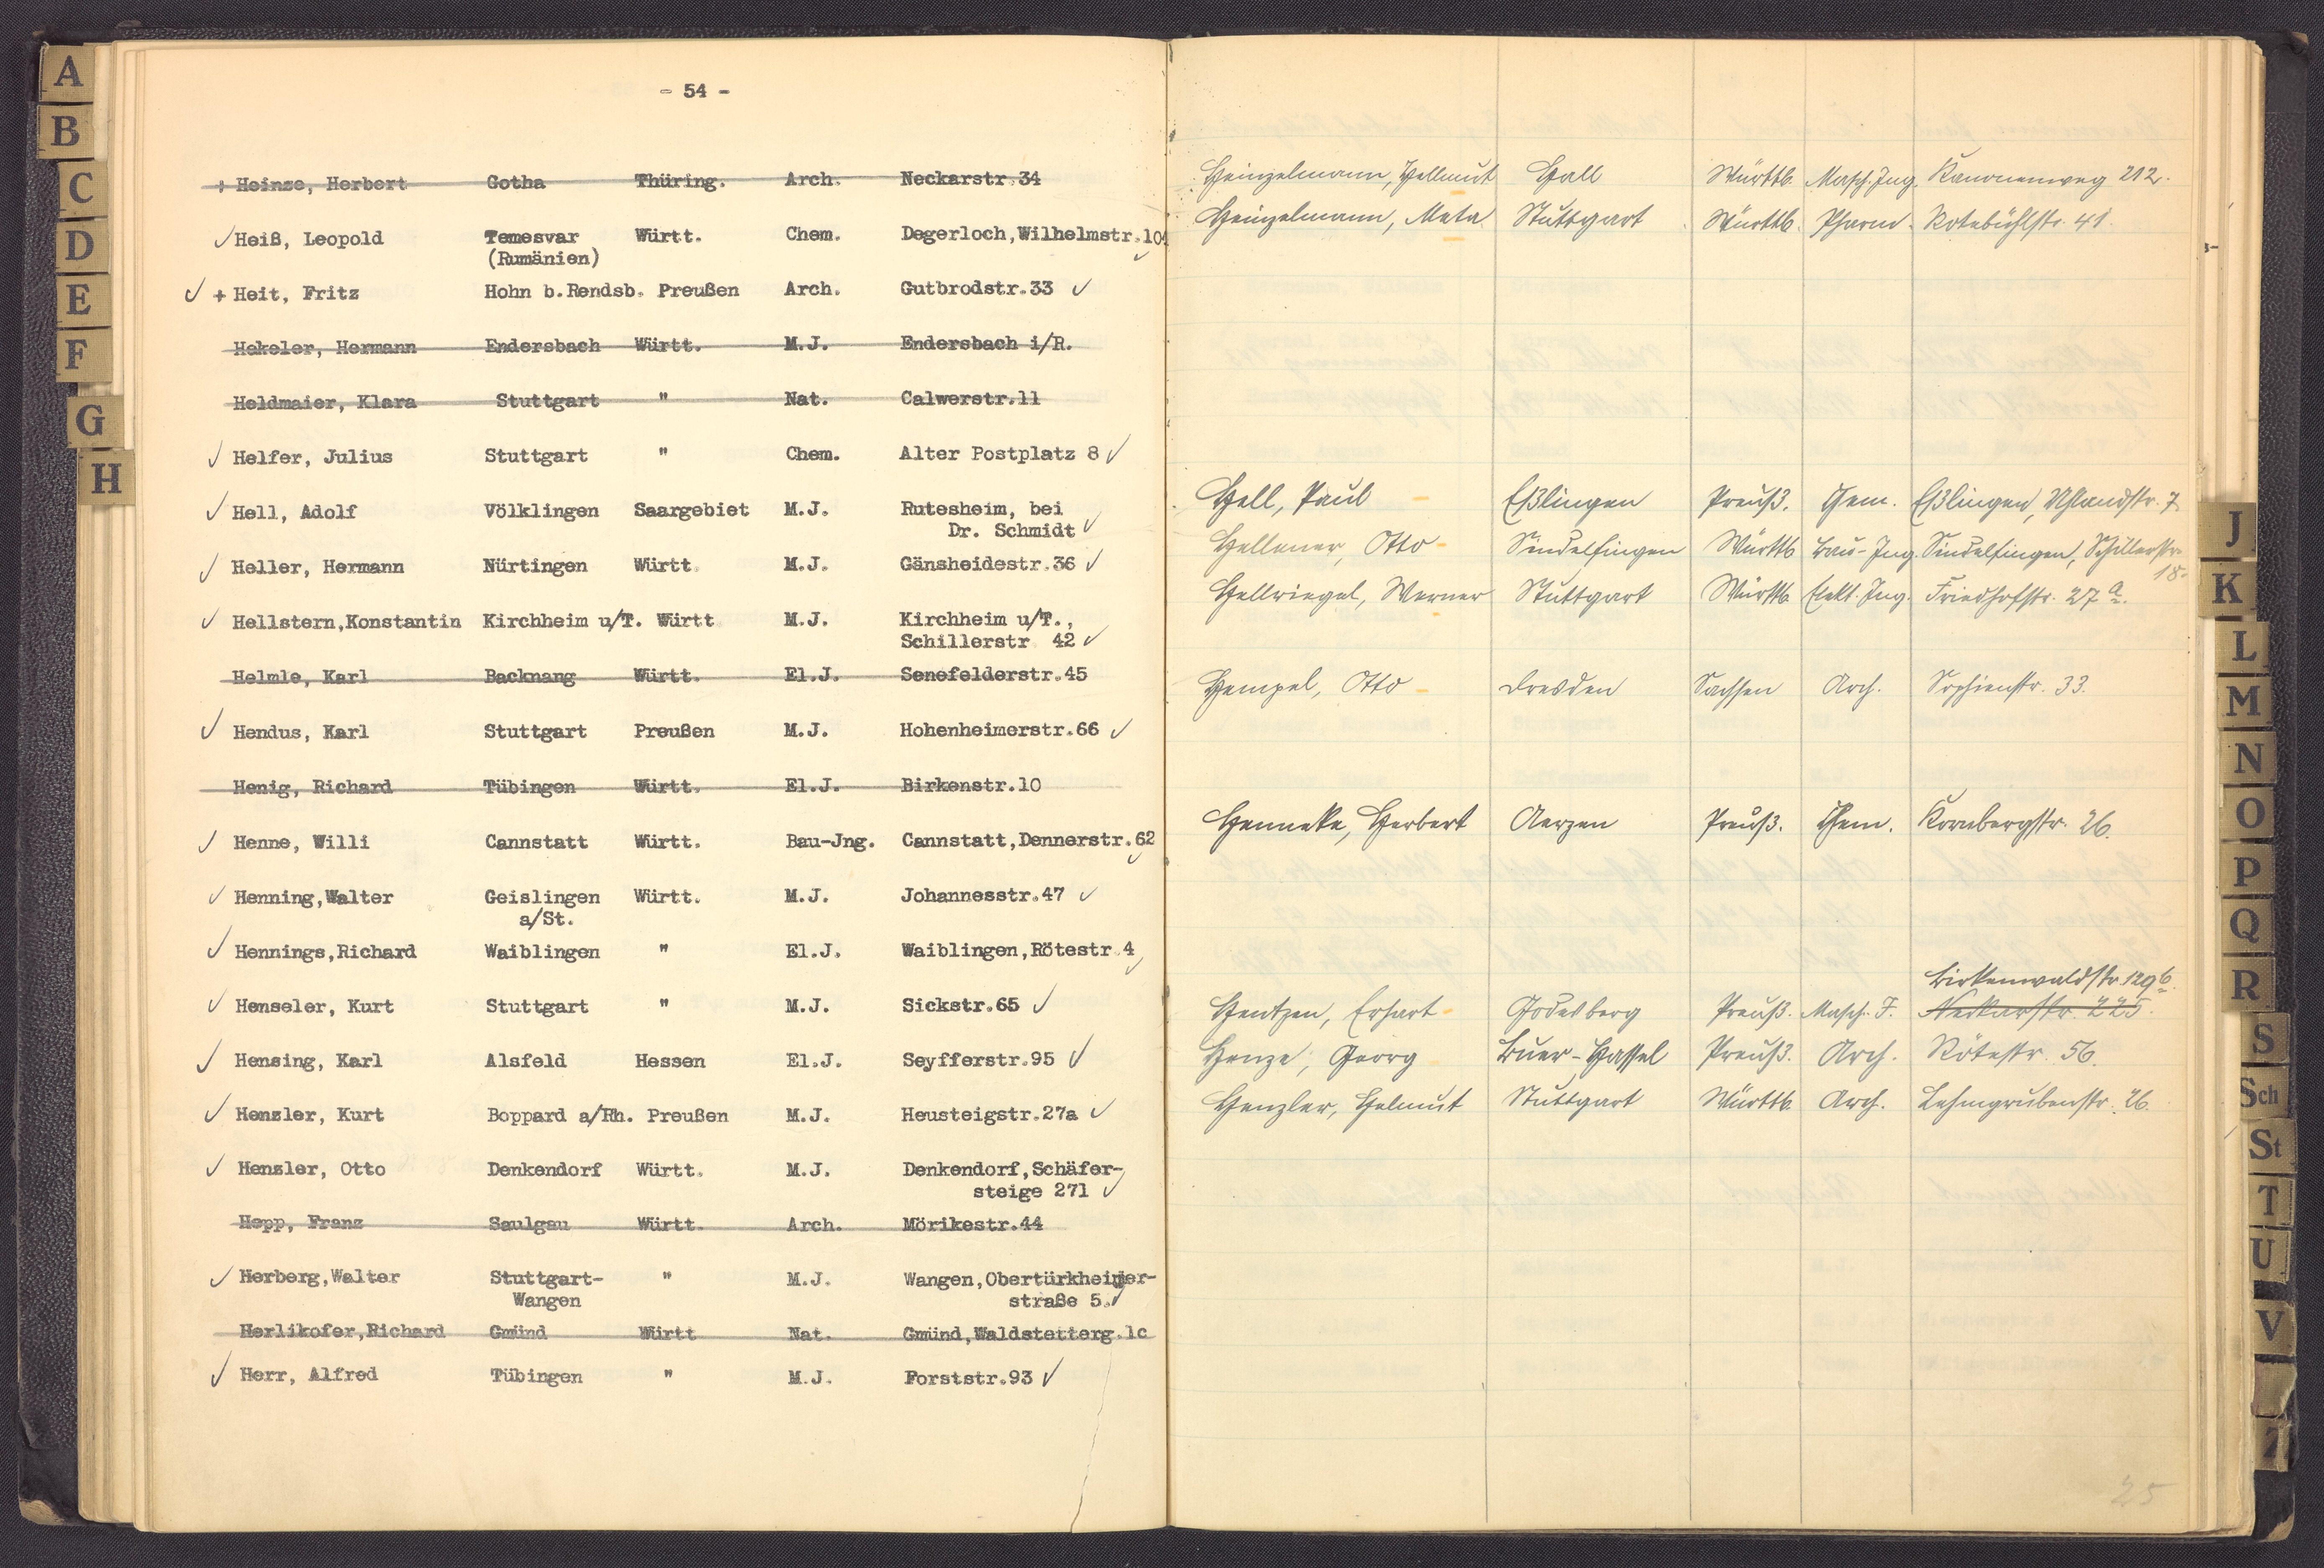 A
B
C
D
E
F
G
H
- 54 -
+ Heinze, Herbert Gotha Thüring. Arch. Neckarstr.34
✓ Heiß, Leopold Temesvar Württ. Chem. Degerloch,Wilhelmstr.10
(Rumänien) ✓
✓ + Heit, Fritz Hohn b.Rendsb. Preußen Arch. Gutbrodstr.33 ✓
Hekeler, Hermann Endersbach Württ. M.J. Endersbach i/R.
Heldmaier, Klara Stuttgart " Nat. Calwerstr.11
✓ Helfer, Julius Stuttgart " Chem. Alter Postplatz 8 ✓
✓ Hell, Adolf Völklingen Saargebiet M.J. Rutesheim, bei
Dr. Schmidt ✓
✓ Heller, Hermann Nürtingen Württ. M.J. Gänsheidestr.36 ✓
✓ Hellstern,Konstantin Kirchheim u/T. Württ M.J. Kirchheim u/T.,
Schillerstr 42 ✓
Helmle, Karl Backnang Württ. El.J. Senefelderstr.45
✓ Hendus, Karl Stuttgart Preußen M.J. Hohenheimerstr.66 ✓
Henig, Richard Tübingen Württ. El.J. Birkenstr.10
✓ Henne, Willi Cannstatt Württ. Bau-Jng. Cannstatt,Dennerstr.62 ✓
✓ Henning,Walter Geislingen Württ. M.J. Johannesstr.47 ✓
a/St.
✓ Hennings,Richard Waiblingen " El.J. Waiblingen,Rötestr.4 ✓
✓ Henseler, Kurt Stuttgart " M.J. Sickstr.65 ✓
✓ Hensing, Karl Alsfeld Hessen El.J. Seyfferstr.95 ✓
✓ Hensler, Kurt Boppard a/Rh. Preußen M.J. Heusteigstr.27a ✓
✓ Hensler, Otto Denkendorf Württ. M.J. Denkendorf,Schäfer-
steige 271 ✓
Hepp, Franz Saulgau Württ. Arch. Mörikestr.44
✓ Herberg,Walter Stuttgart- " M.J. Wangen,Obertürkheimer-
Wangen straße 5. ✓
Herlikofer,Richard Gmünd Württ Nat. Gmünd,Waldstetterg.1c
✓ Herr, Alfred Tübingen " M.J. Forststr.93 ✓
Heinzelmann, Hellmut Hall Württb. Masch.Ing. Kanonenweg 212.
Heinzelmann, Meta Stuttgart Württb. Pharm. Rotebühlstr. 41.
Hell, Paul Eßlingen Preuß. Chem. Eßlingen, Uhlandstr. 7
Hellener, Otto Sindelfingen Württb Bau-Ing. Sindelfingen, Schillerstr.
18.
Hellriegel, Werner Stuttgart Württb. Elekt. Ing. Friedhofstr. 27 a.
Hempel, Otto Dresden Sachsen Arch. Sophienstr. 33.
Henneke, Herbert Aerzen Preuß. Chem. Kornbergstr. 26.
Birkenwaldstr. 129 b.
Hentzen, Erhart Godesberg Preuß. Masch. I. Neckarstr. 225.
Henze, Georg Buer-Hassel Preuß. Arch. Rötestr. 56.
Henzler, Helmut Stuttgart Württb. Arch. Lehmgrubenstr. 26.
25
J
K
L
M
N
O
P
Q
R
S
Sch
St
T
U
V
Z